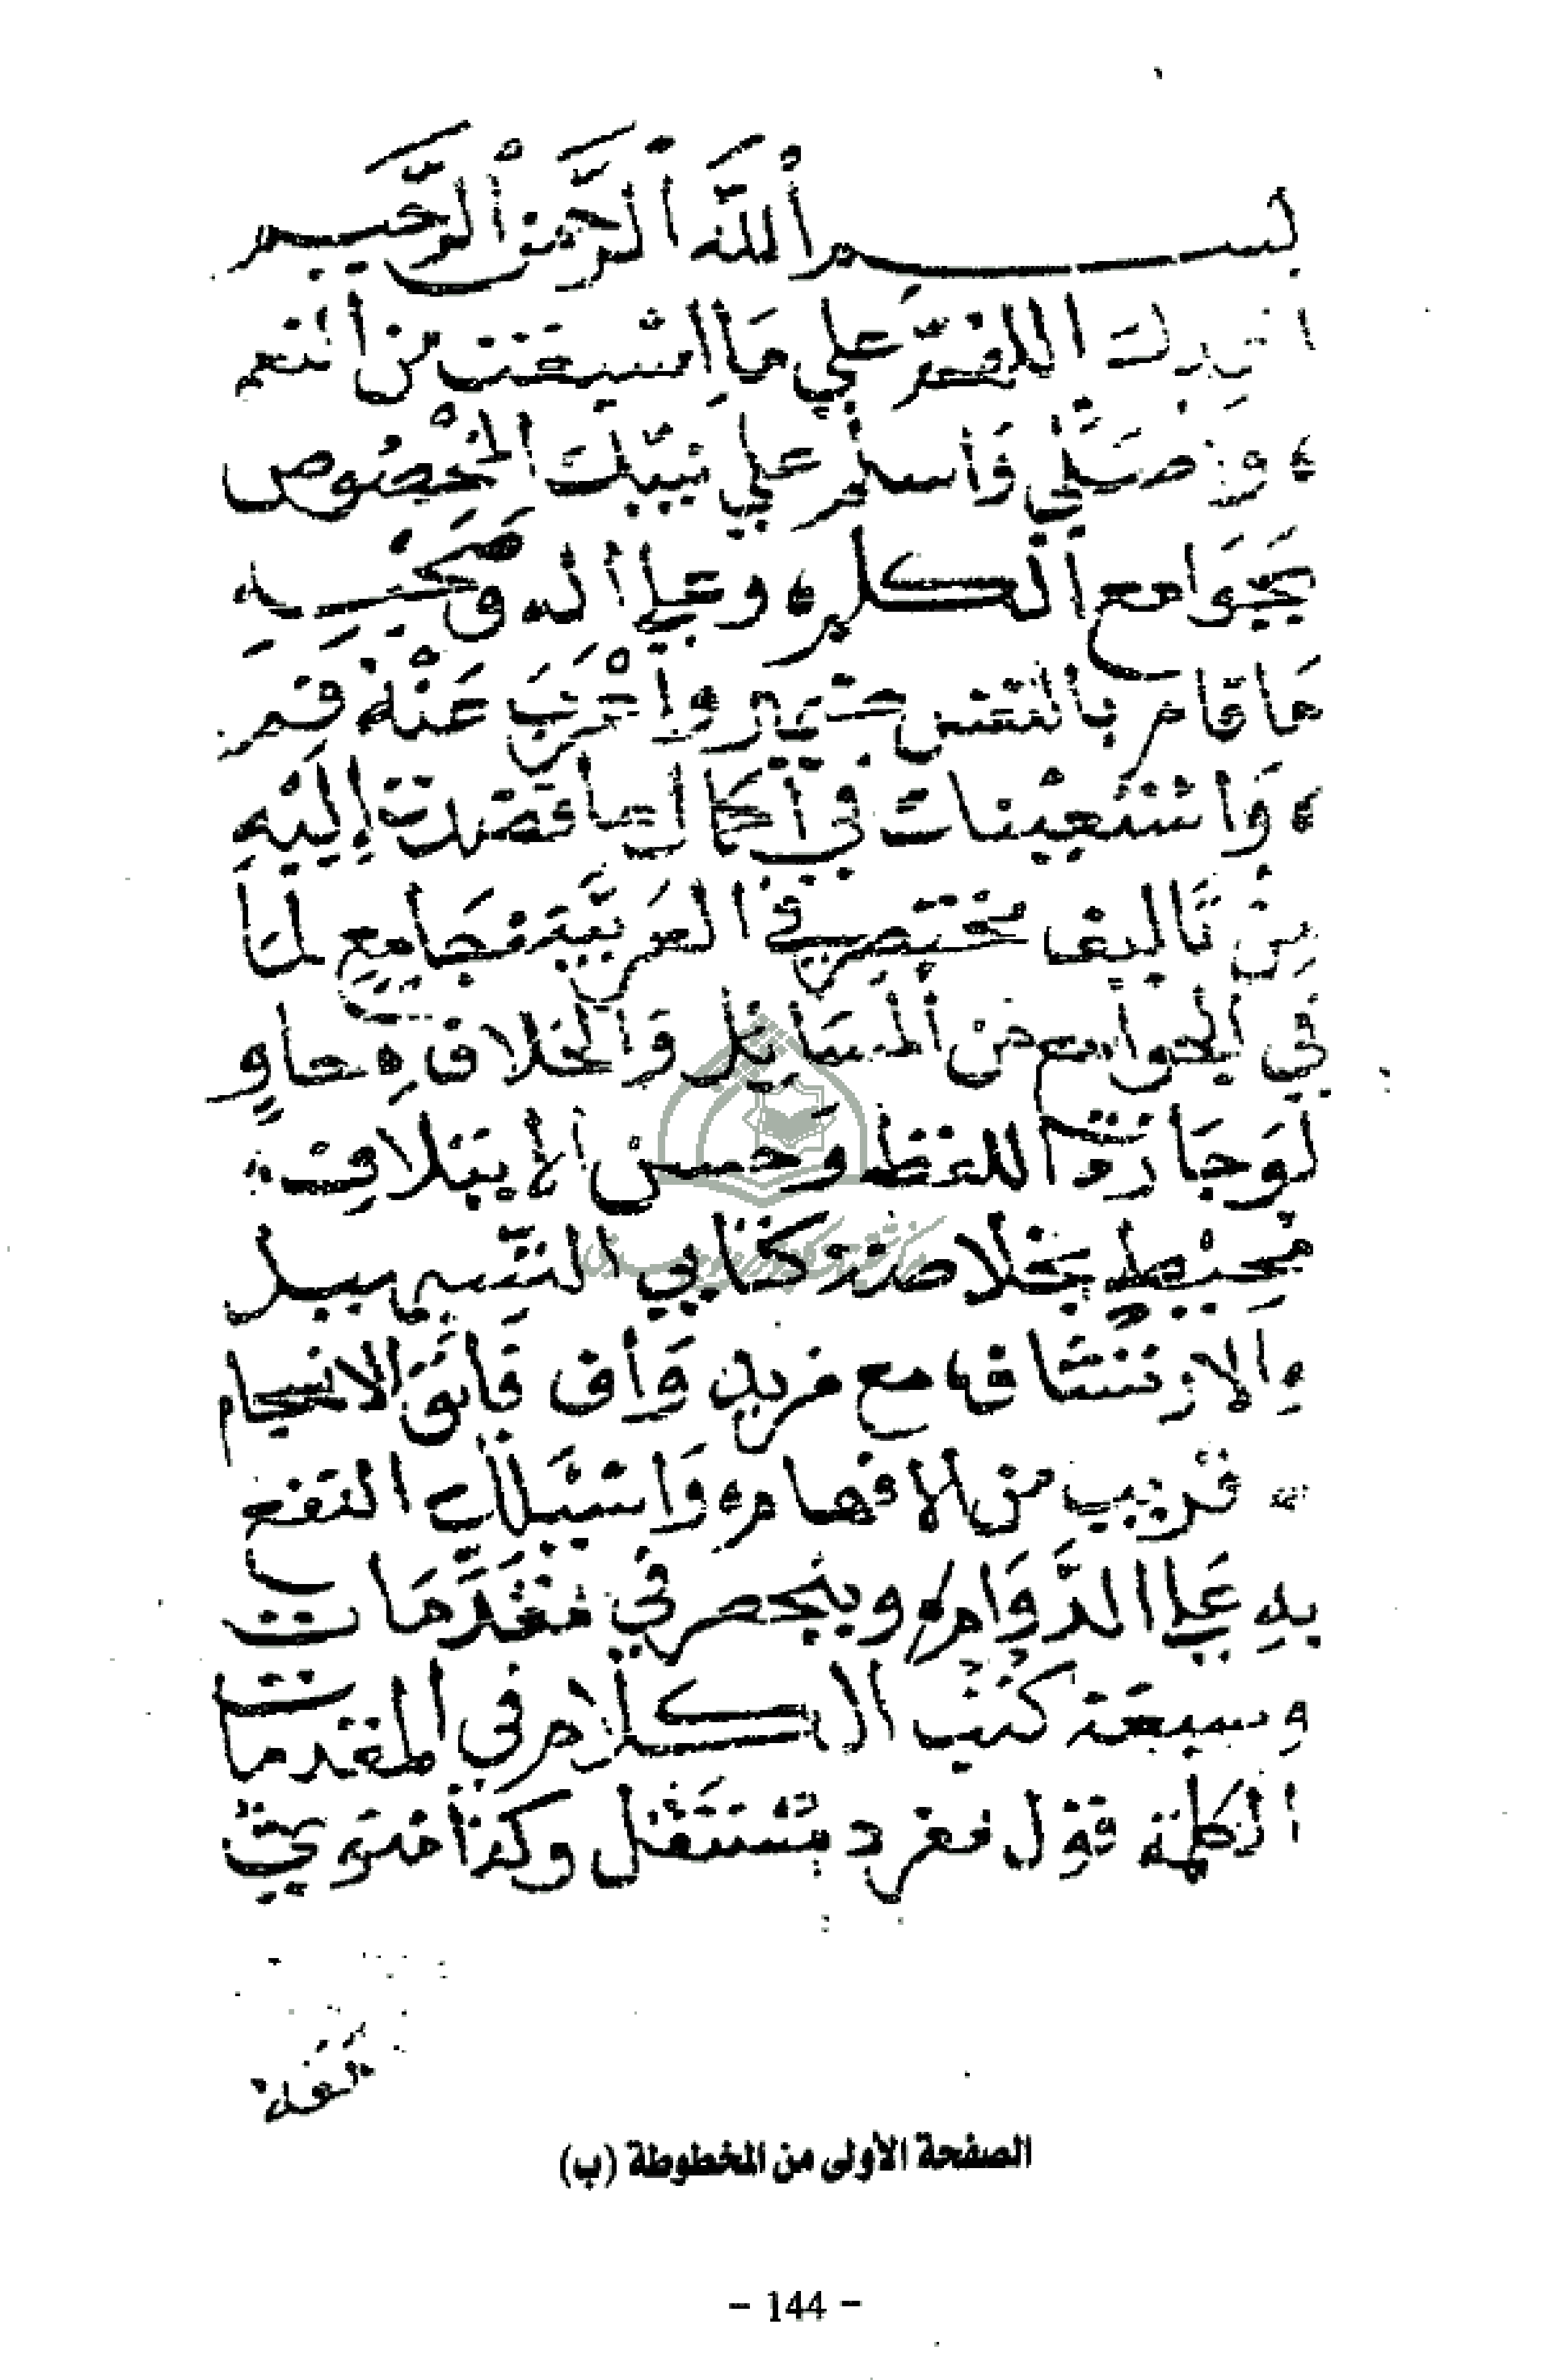 بسم اللَّه الرَّحمن الرَّحيم
اللهم علي مَا اسبغت من النعم
وَأصَلِّي وَأسلم علي نبيّك المخْصُوص
بجَوَامع الكلم وعلي اله وصَحْبِه
مَا قام بالنفس وأعْرَبَ عَنْهُ فم
وَأستعِينك في اكمال ما قصدت إليْهِ
مِنْ تَاليف مختصر في العَربيّة جَامِع لمَا
في الجوامع منْ المسَايِل وَالخلاف حاوٍ
لوَجَازة اللفظ وَحسن الايتلاف
مُحِيْطٍ بخلاصة كتابي التسهيل
والارتشاف مع مزيد وَاف فَائق الانسجام
قريب من الافهام وَاسئلك النفع
بهِ عَلي الدَّوَام وينحصر في مُقَدِّمَات
وسبعة كتب الكلام في المقدمات
الكلمة قول مفرد مستَقل وكذا منوي
الصفحة الأولى من المخطوطة (ب)
- 144 -